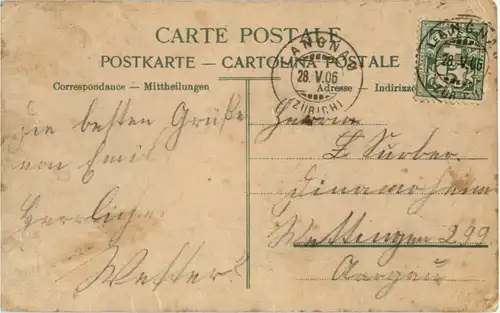 CARTE POSTALE
POSTKARTE — CARTOLINA POSTALE
Correspondance — Mittheilungen
Adresse — Indirizzo
LANGNAU
28.V.06
(ZÜRICH)
LANGNAU
28.V.06
Die besten Grüße
von Emil
Herrliches
Wetter!
Herrn
E Surber
Wettingen 299
Aargau